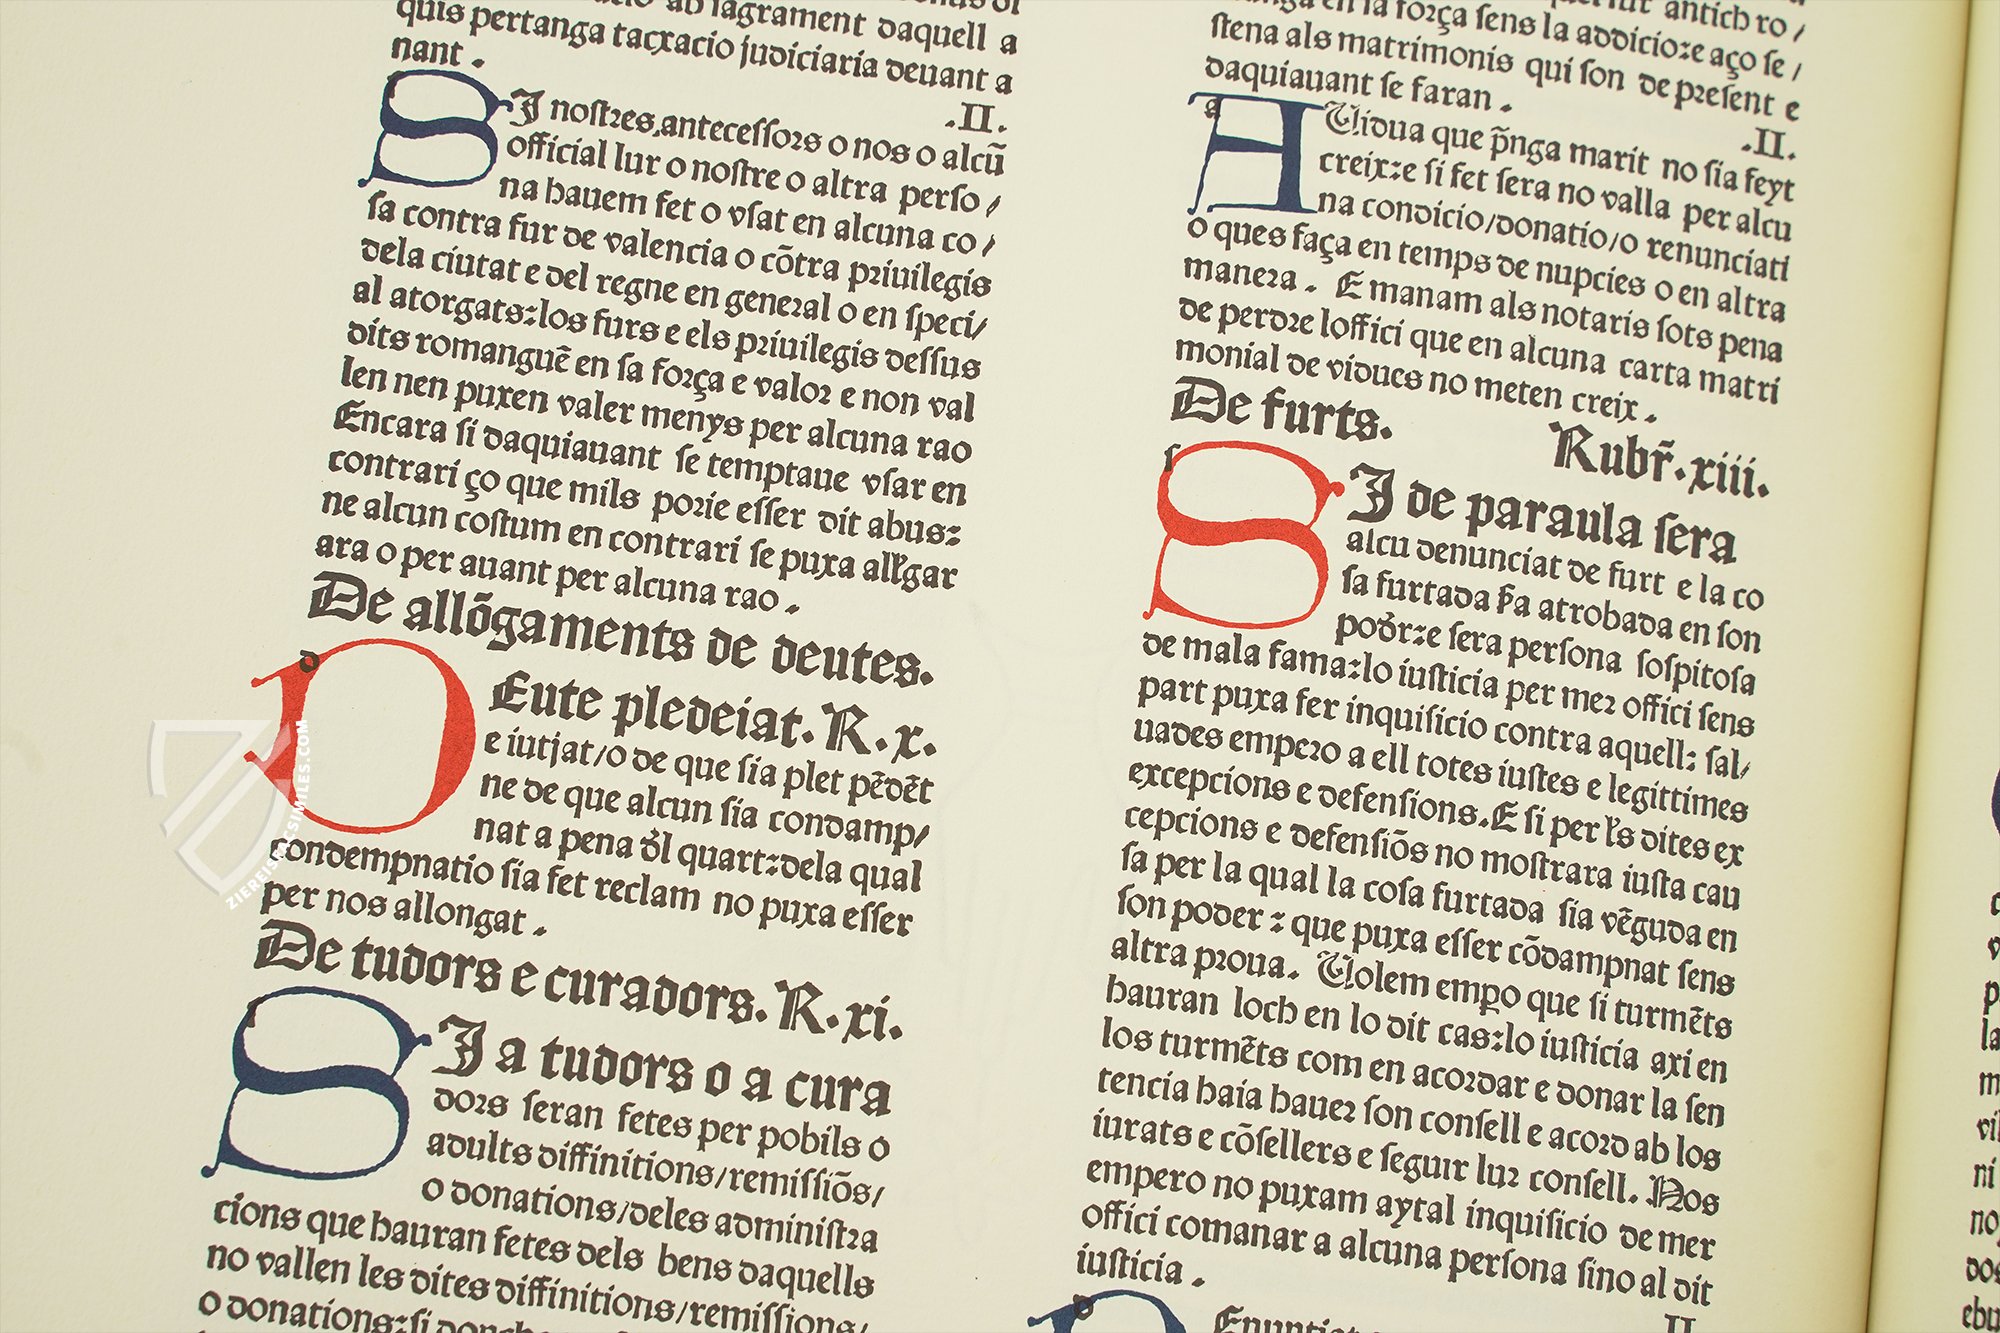 quis pertanga tacxacio judiciaria deuant a
nant .
.II.
SJ noſtres anteceſſors o nos o alcũ
official lur o noſtre o altra perſo /
na hauem fet o vſat en alcuna co /
ſa contra fur de valencia o cõtra priuilegis
dela ciutat e del regne en general o en ſpeci/
al atorgats:los furs e els priuilegis deſſus
dits romanguẽ en ſa força e valor e non val
len nen puxen valer menys per alcuna rao
Encara ſi daquiauant ſe temptaue vſar en
contrari ço que mils porie eſſer dit abus:
ne alcun coſtum en contrari ſe puxa allꝉgar
ara o per auant per alcuna rao .
De allõgaments de deutes.
d
DEute pledeiat. R. x.
e iutjat/o de que ſia plet pẽdẽt
ne de que alcun ſia condamp/
nat a pena d̉l quart:dela qual
condempnatio ſia fet reclam no puxa eſſer
per nos allongat .
De tudors e curadors. R. xi.
SJ a tudors o a cura
dors ſeran fetes per pobils o
adults diffinitions/remiſſiõs/
o donations/deles adminiſtra
cions que hauran fetes dels bens daquells
no vallen les dites diffinitions/remiſſions/
ſtena als matrimonis qui ſon de preſent e
daquiauant ſe faran .
.II.
a
A Uidua que p̃nga marit no ſia feyt
creix:e ſi fet ſera no valla per alcu
na condicio/donatio/o renunciati
o ques faça en temps de nupcies o en altra
manera . E manam als notaris ſots pena
de perdre loffici que en alcuna carta matri
monial de vidues no meten creix .
De furts.
Rubr̃. xiii.
ſ
SJ de paraula ſera
alcu denunciat de furt e la co
ſa furtada ſ̉a atrobada en ſon
pod̉r:e ſera perſona ſoſpitoſa
de mala fama:lo iuſticia per mer offici ſens
part puxa fer inquiſicio contra aquell: ſal/
uades empero a ell totes iuſtes e legittimes
excepcions e defenſions. E ſi per les dites ex
cepcions e defenſiõs no moſtrara iuſta cau
ſa per la qual la coſa furtada ſia vẽguda en
ſon poder : que puxa eſſer cõdampnat ſens
altra proua. Uolem emꝑo que ſi turmẽts
hauran loch en lo dit cas:lo iuſticia axi en
los turmẽts com en acordar e donar la ſen
tencia haia hauer ſon conſell e acord ab los
iurats e cõſellers e ſeguir lur conſell. Nos
empero no puxam aytal inquiſicio de mer
offici comanar a alcuna perſona ſino al dit
iuſticia .
II
d
ZIEREIS FACSIMILES.COM